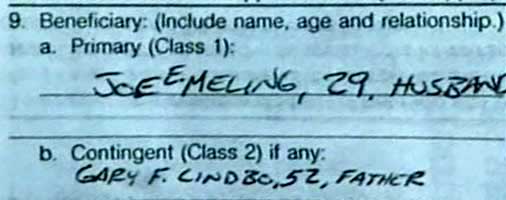 9. Beneficiary: (Include name, age and relationship.)
a. Primary (Class 1):
JOE EMELING, 29, HUSBAND
b. Contingent (Class 2) if any:
GARY F. LINDBO, 52, FATHER